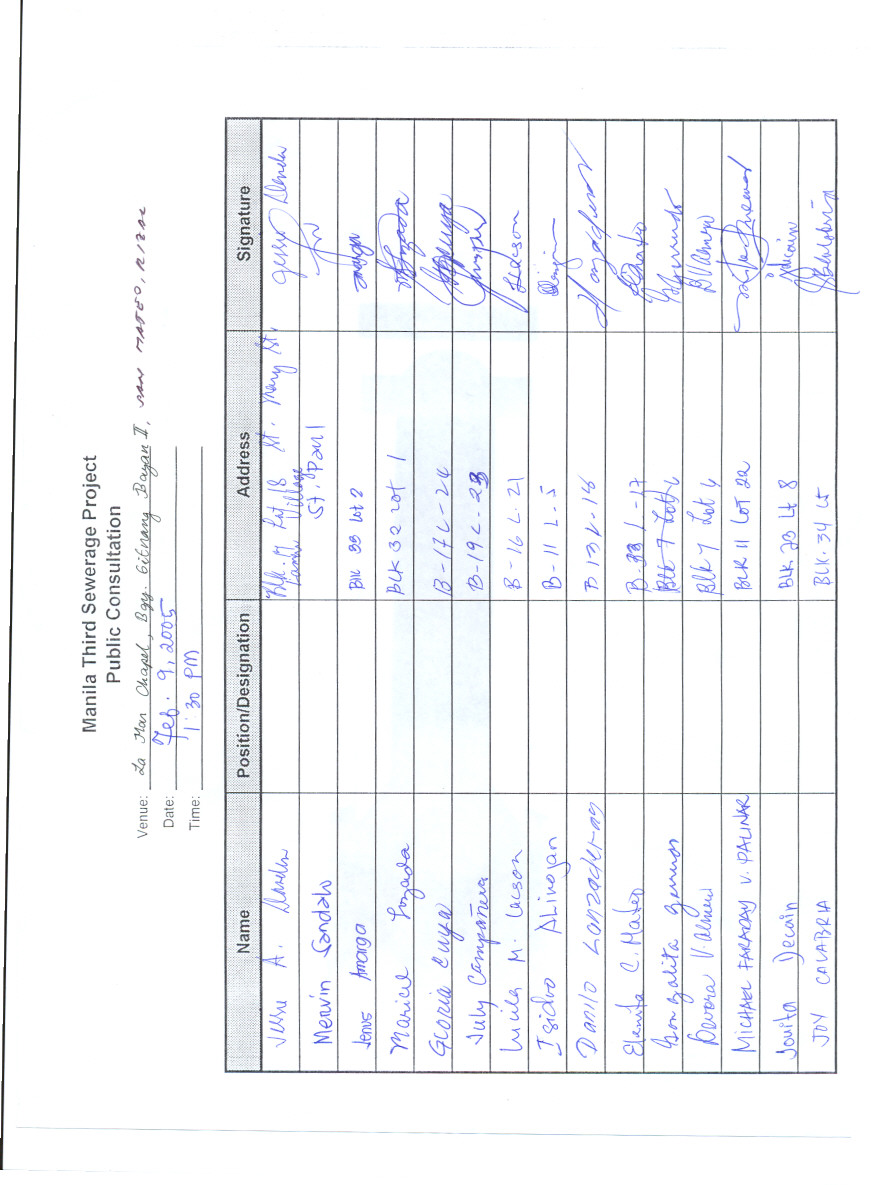 Manila Third Sewerage Project
Public Consultation
Venue: La Mar Chapel, Bgy. Gitnang Bayan II, SAN MATEO, RIZAL
Date: Feb. 9, 2005
Time: 1:30 PM
Name Position/Designation Address Signature
A. Lot 18 St. Mary St.
Village
Mervin Sandalo St. Paul
Amargo Blk 33 Lot 2
Maricel Lozada BLK 32 Lot 1
Gloria Cuya B-17 L-24
July Campañera B-19 L-23
Lucila M. Lacson B-16 L-21 Lacson
Isidro Alinojan B-11 L-5
Danilo Lonzaderas B 13 L-18
Elenita C. Mateo B-33 L-17
Gonzalita Blk 7 Lot 6
Devora V. Blk 7 Lot 6
MICHAEL FARADAY V. PALINAR BLK 11 LOT 22
Jovita Decain BLK 23 Lt 8
JOY CALABRIA BLK. 34 L5